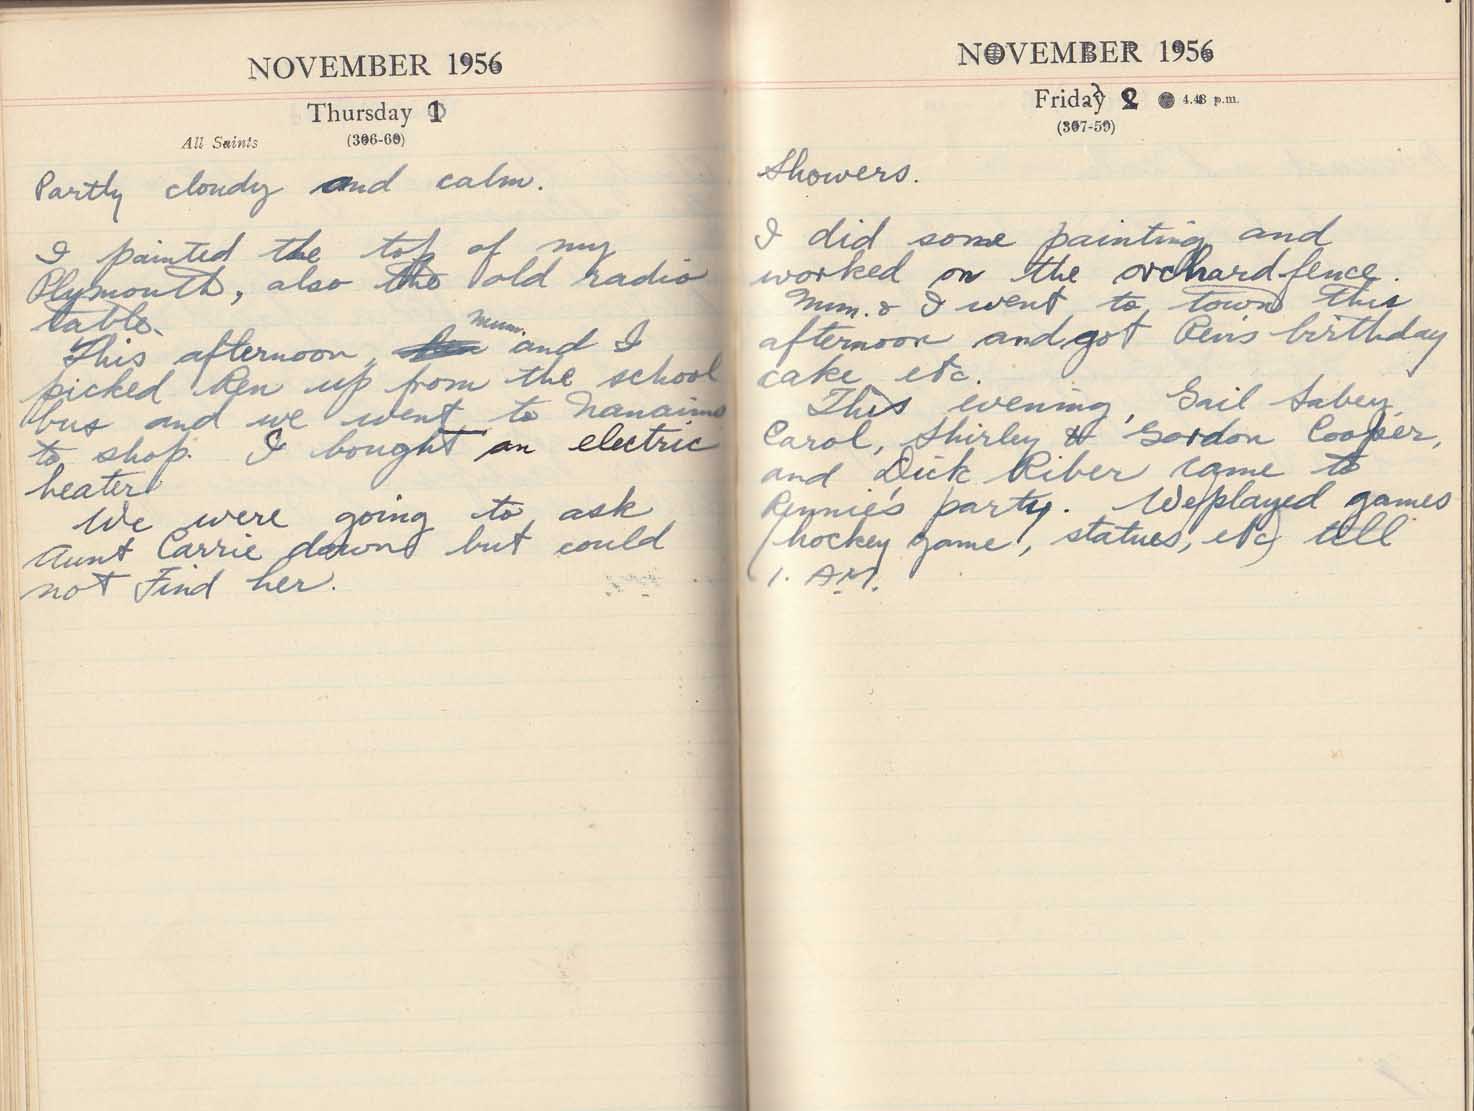 NOVEMBER 1956
Thursday 1
All Saints (306-60)
Partly cloudy and calm.
I painted the top of my
Plymouth, also the old radio
table.
Mum.
This afternoon, and I
picked Ren up from the school
bus and we went to Nanaimo
to shop. I bought an electric
heater
We were going to ask
Aunt Carrie down but could
not Find her.
NOVEMBER 1956
Friday 2 4.43 p.m.
(307-59)
Showers.
I did some painting and
worked on the orchard fence.
Mum. & I went to town this
afternoon and got Ren's birthday
cake etc.
This evening, Gail Sabey,
Carol, Shirley & Gordon Cooper,
and Dick Riber came to
Rennie's party. We played games
(hockey game, statues, etc) till
1. A.M.